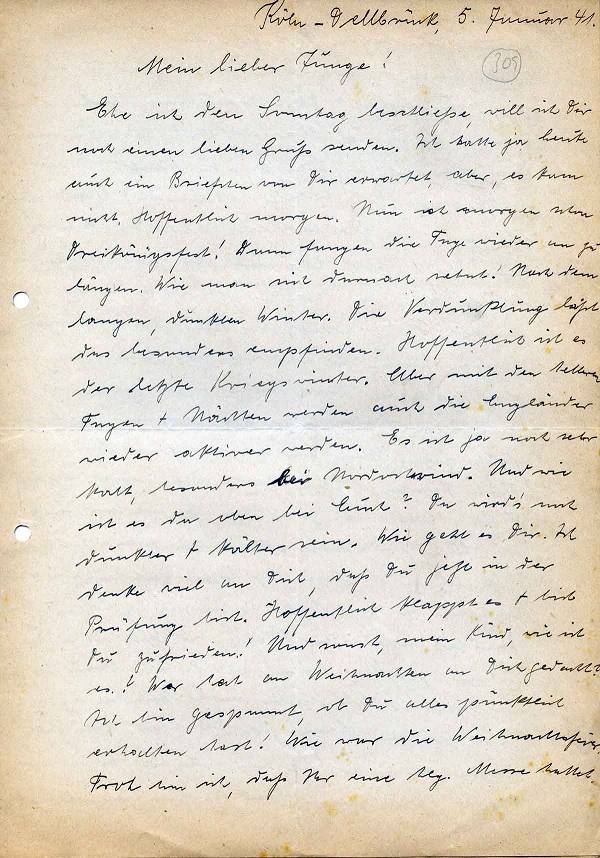 Köln-Dellbrück, 5. Januar 41.
309
Mein lieber Junge!
Ehe ich den Sonntag beschließe, will ich Dir
noch einen lieben Gruß senden. Ich hatte ja heute
auch ein Briefchen von Dir erwartet, aber, es kam
nicht. Hoffentlich morgen. Nun ist morgen schon
Dreikönigsfest! Dann fangen die Tage wieder an zu
längen. Wie man sich darnach sehnt! Nach dem
langen, dunklen Winter. Die Verdunklung läßt
das besonders empfinden. Hoffentlich ist es
der letzte Kriegswinter. Aber mit den helleren
Tagen + Nächten werden auch die Engländer
wieder aktiver werden. Es ist ja noch sehr
kalt, besonders bei Nordostwind. Und wie
ist es da oben bei Euch? Da wird's noch
dunkler + kälter sein. Wie geht es Dir. Ich
denke viel an Dich, daß Du jetzt in der
Prüfung bist. Hoffentlich klappt es + bist
Du zufrieden! Und sonst, mein Kind, wie ist
es? Wer hat an Weihnachten an Dich gedacht?
Ich bin gespannt, ob Du alles pünktlich
erhalten hast! Wie war die Weihnachtsfeier
Froh bin ich, daß Ihr eine hlg. Messe hattet.